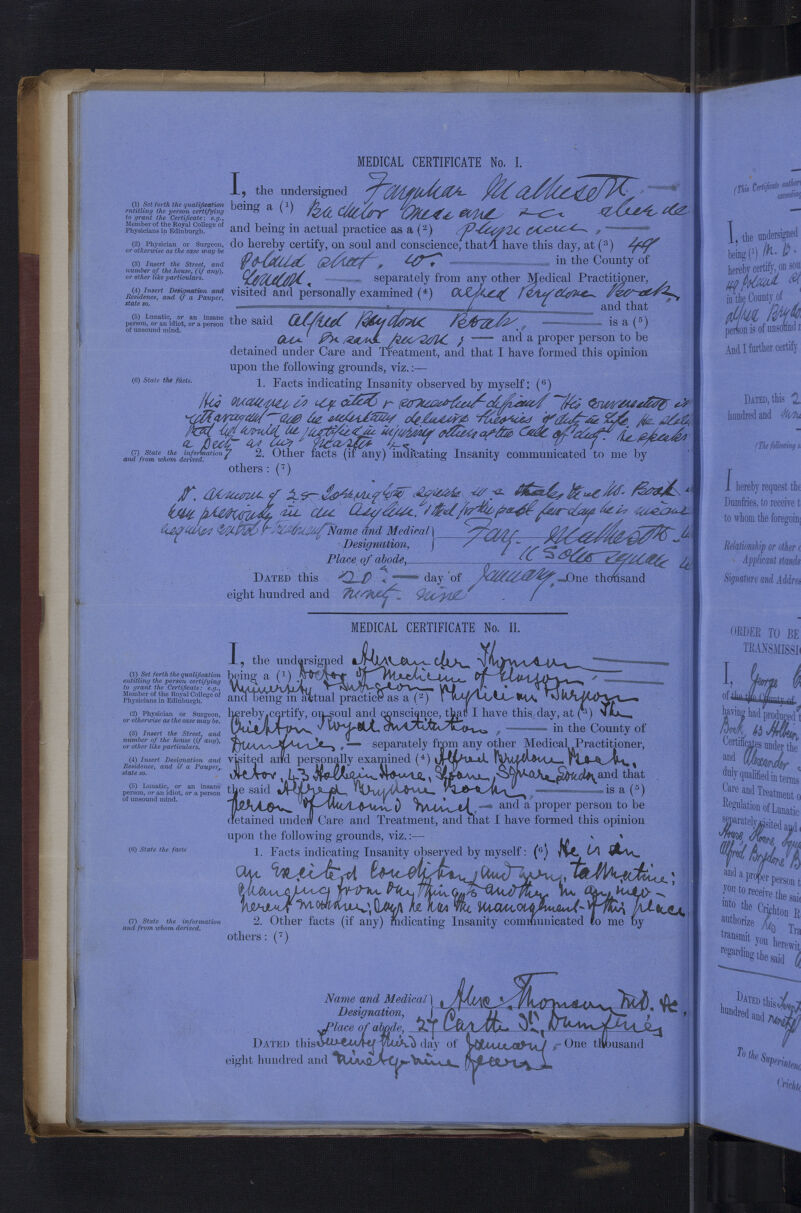 MEDICAL CERTIFICATE No. I.
I, the undersigned Farquhar Matheson
(1) Set forth the qualification entitling the person certifying to grant the Certificate; e.g., Member of the Royal College of Physicians in Edinburgh.
being a (1) Bachelor
and being in actual practice as a (2) Physician,
(2) Physician or Surgeon, or otherwise as the case may be
do hereby certify, on soul and conscience, that I have this day, at (3) 49
(3) Insert the Street, and number of the house, (if any), or other like particulars.
Poland Street, W. in the County of
London. separately from any other Medical Practitioner,
(4) Insert Designation and Residence, and if a Pauper, state so.
visited and personally examined (4) Alfred Brydone Boak,
and that
(5) Lunatic, or an insane person, or an idiot, or a person of unsound mind.
the said Alfred Brydone Boak, is a (5)
an Insane person; and a proper person to be
detained under Care and Treatment, and that I have formed this opinion
upon the following grounds, viz.:—
(6) State the facts.
1. Facts indicating Insanity observed by myself: (6)
His manner is excited & somewhat defiant His conversation is
extravagant and he entertains delusive theories of duty in life. He states
that he would be justified in injuring others at the call of duty. he speaks
(7) State the information and from whom derived.
2. Other facts (if any) indicating Insanity communicated to me by
others: (7)
Dr. Armour of square W. states that Mr. Boak
been previously in an asylum. & that for the past few days he is
requires control & treatment
Name and Medical Designation, Farq. Matheson
Place of abode, 11 Soho Square W
DATED this 20 day of January, One thousand
eight hundred and ninety-nine
MEDICAL CERTIFICATE No. II.
I, the undersigned Alexander Thomson
(1) Set forth the qualification entitling the person certifying to grant the Certificate; e.g., Member of the Royal College of Physicians in Edinburgh.
being a (1) Doctor of Medicine of Glasgow
University & Surgeon
and being in actual practice as a (2) Physician & Surgeon
(2) Physician or Surgeon, or otherwise as the case may be.
hereby certify, on soul and conscience, that I have this day, at (3) The
(3) Insert the Street, and number of the house (if any), or other like particulars.
Crichton Royal Institution, in the County of
Dumfries, separately from any other Medical Practitioner,
(4) Insert Designation and Residence, and if a Pauper, state so.
visited and personally examined (4) Alfred Brydone Boak,
Actor, 43 Holbein House, Sloane Square London and that
(5) Lunatic, or an insane person, or an idiot, or a person of unsound mind.
the said Alfred Brydone Boak, is a (5)
person of unsound mind and a proper person to be
detained under Care and Treatment, and that I have formed this opinion
upon the following grounds, viz.:—
(6) State the facts
1. Facts indicating Insanity observed by myself: (6) He is in
an excited condition and very talkative;
changing from one thing to another in an incoherent manner; says he has the management of this place
(7) State the information and from whom derived.
2. Other facts (if any) indicating Insanity communicated to me by
others: (7)
Name and Medical Designation, Alex. Thomson M.D. &c.
Place of abode, 27 Castle St. Dumfries
DATED this twenty third day of January, One thousand
eight hundred and ninety-nine years
(This Certificate
I, the undersigned
being (1) M. D.
hereby certify, on soul
49 Poland
in the County of
Alfred Brydone
person is of unsound
And I further certify
DATED, this 2
hundred and
(The following
I hereby request the
Dumfries, to receive
to whom the foregoing
Relationship or other
Applicant stands
Signature and Address
ORDER TO BE
TRANSMISSI
I, George
of the County of
having had produced
Boak, 43 Holbein
Certificates under the
and Alexander
duly qualified in terms
Care and Treatment
Regulation of Lunatic
separately visited and
House, Sloane
Alfred Brydone
and a proper person
you to receive the said
into the Crichton
authorize
transmit you herewith
regarding the said
DATED this
hundred and
To the Superintend
Crichto